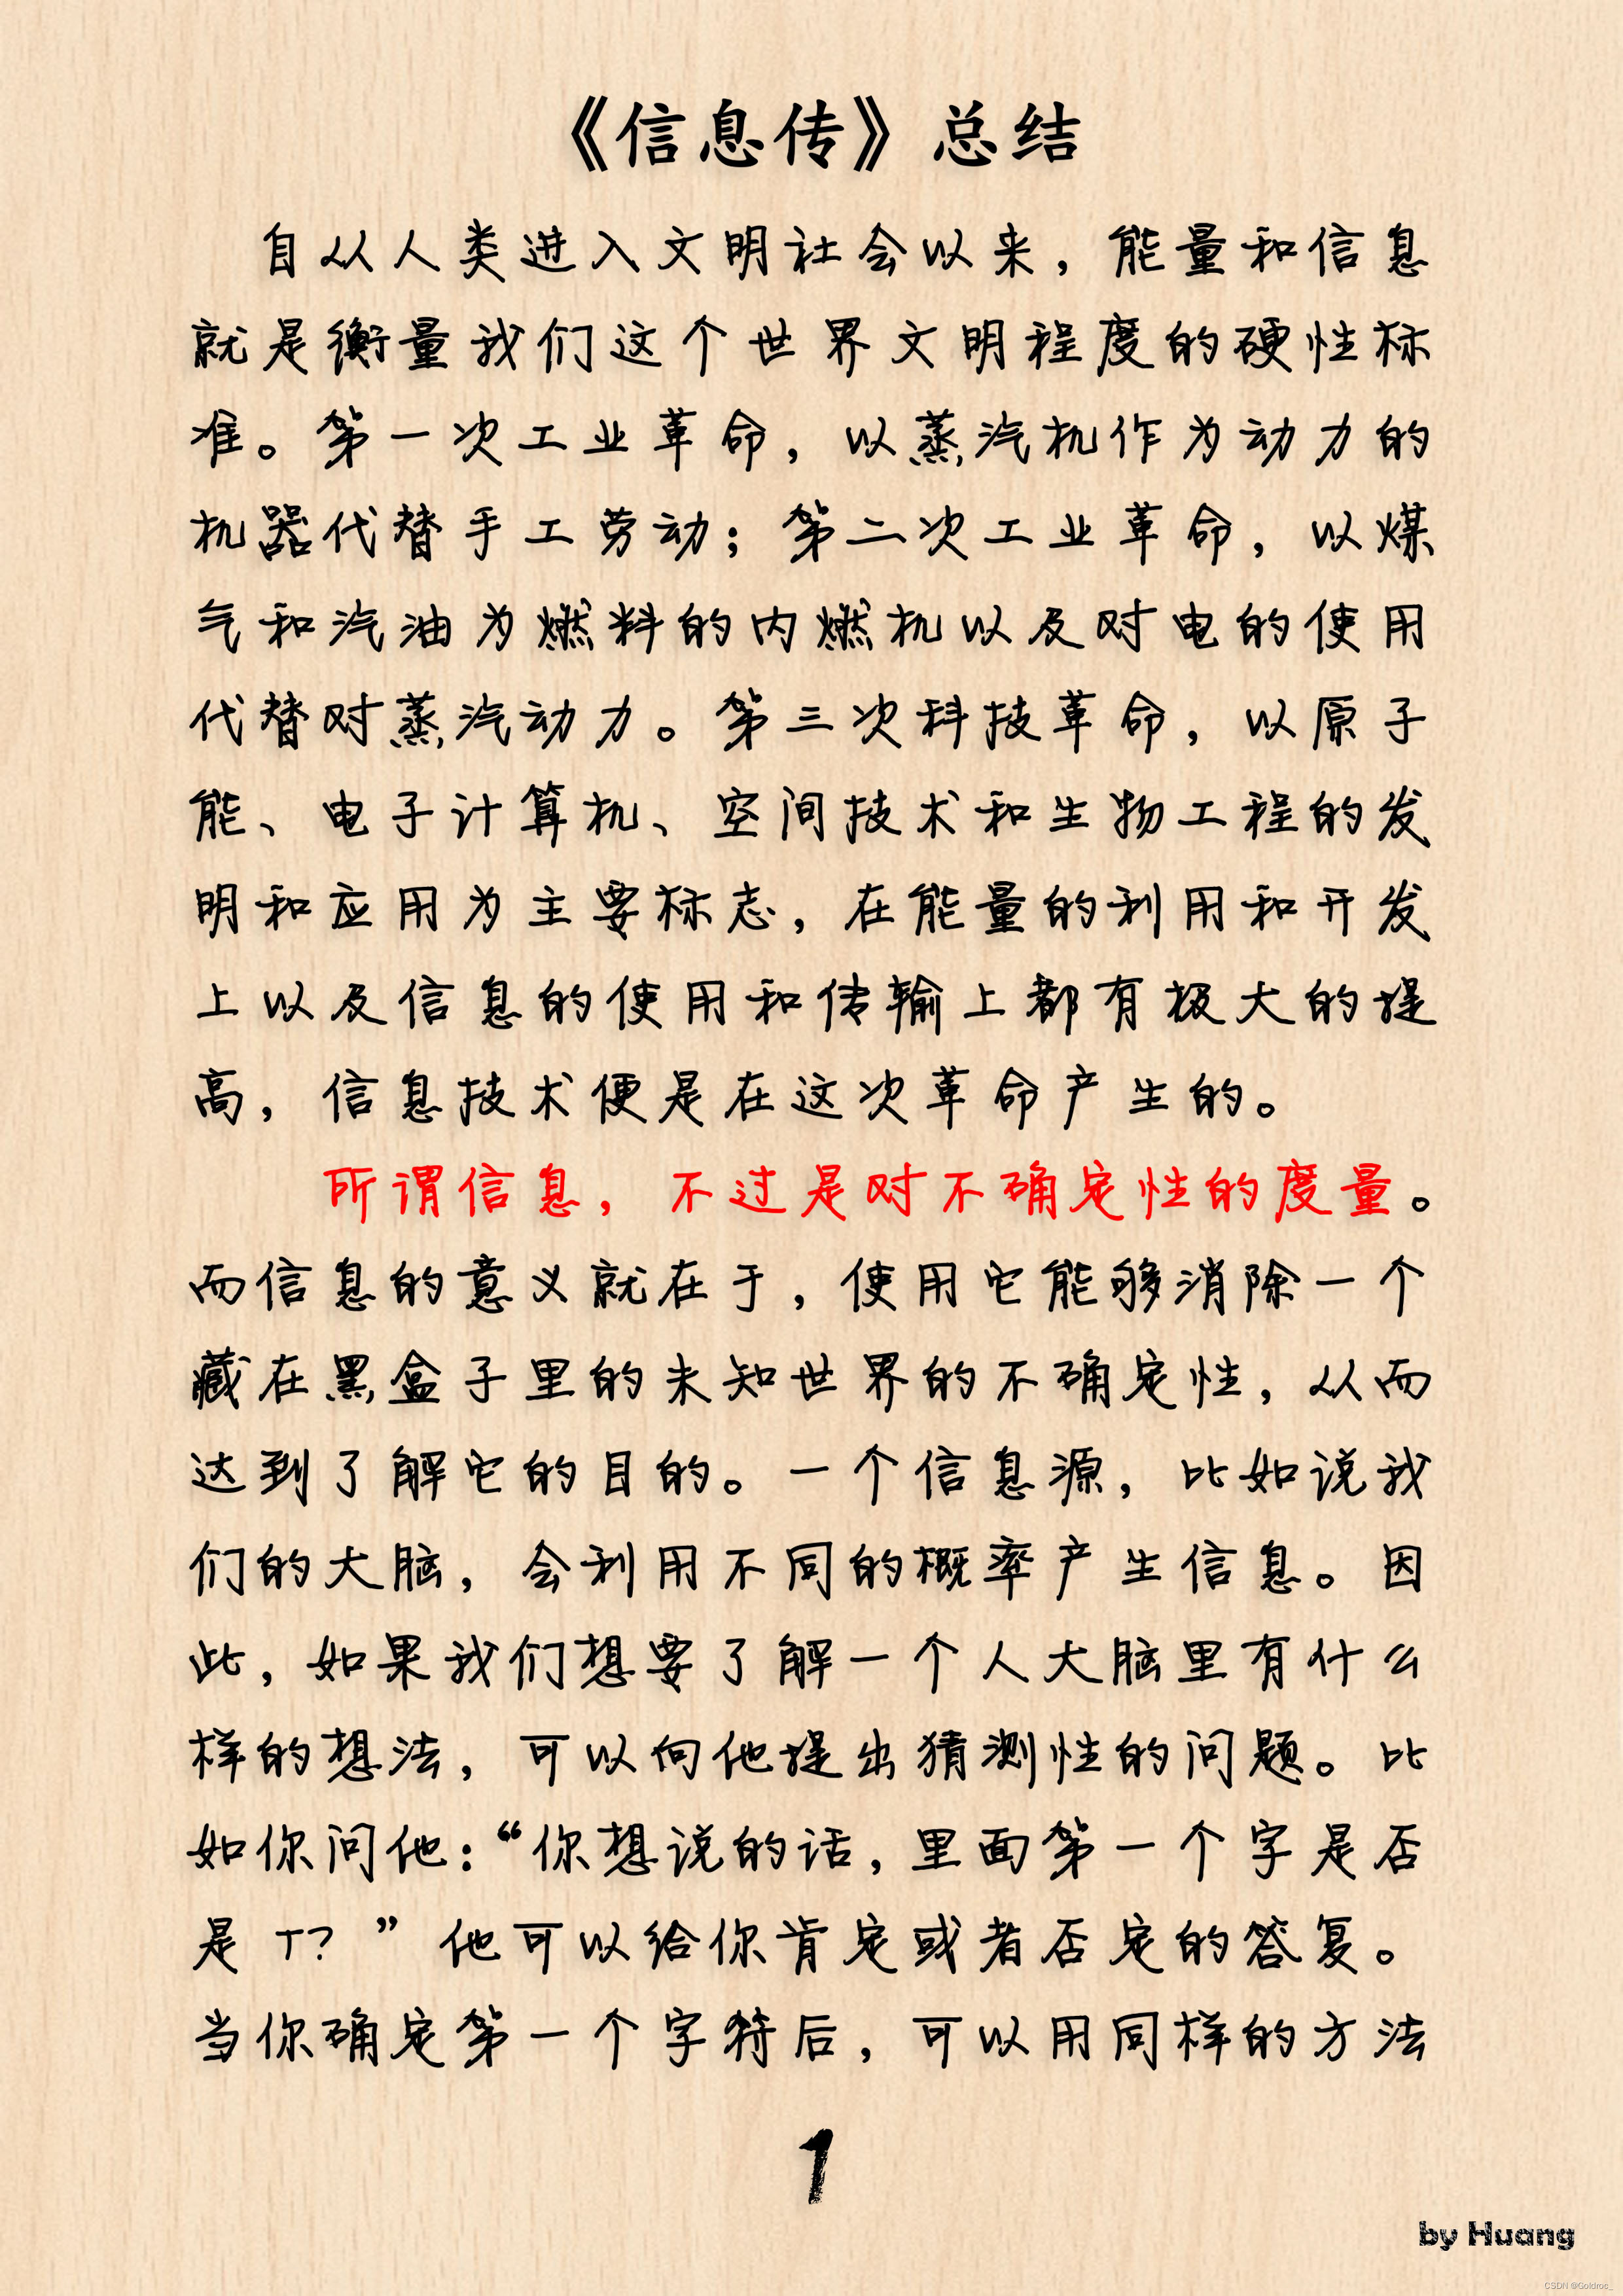 《信息传》总结
自从人类进入文明社会以来，能量和信息
就是衡量我们这个世界文明程度的硬性标
准。第一次工业革命，以蒸汽机作为动力的
机器代替手工劳动；第二次工业革命，以煤
气和汽油为燃料的内燃机以及对电的使用
代替对蒸汽动力。第三次科技革命，以原子
能、电子计算机、空间技术和生物工程的发
明和应用为主要标志，在能量的利用和开发
上以及信息的使用和传输上都有极大的提
高，信息技术便是在这次革命产生的。
所谓信息，不过是对不确定性的度量。
而信息的意义就在于，使用它能够消除一个
藏在黑盒子里的未知世界的不确定性，从而
达到了解它的目的。一个信息源，比如说我
们的大脑，会利用不同的概率产生信息。因
此，如果我们想要了解一个人大脑里有什么
样的想法，可以向他提出猜测性的问题。比
如你问他：“你想说的话，里面第一个字是否
是 T？”他可以给你肯定或者否定的答复。
当你确定第一个字符后，可以用同样的方法
1
by Huang
CSDN @Goldroc_